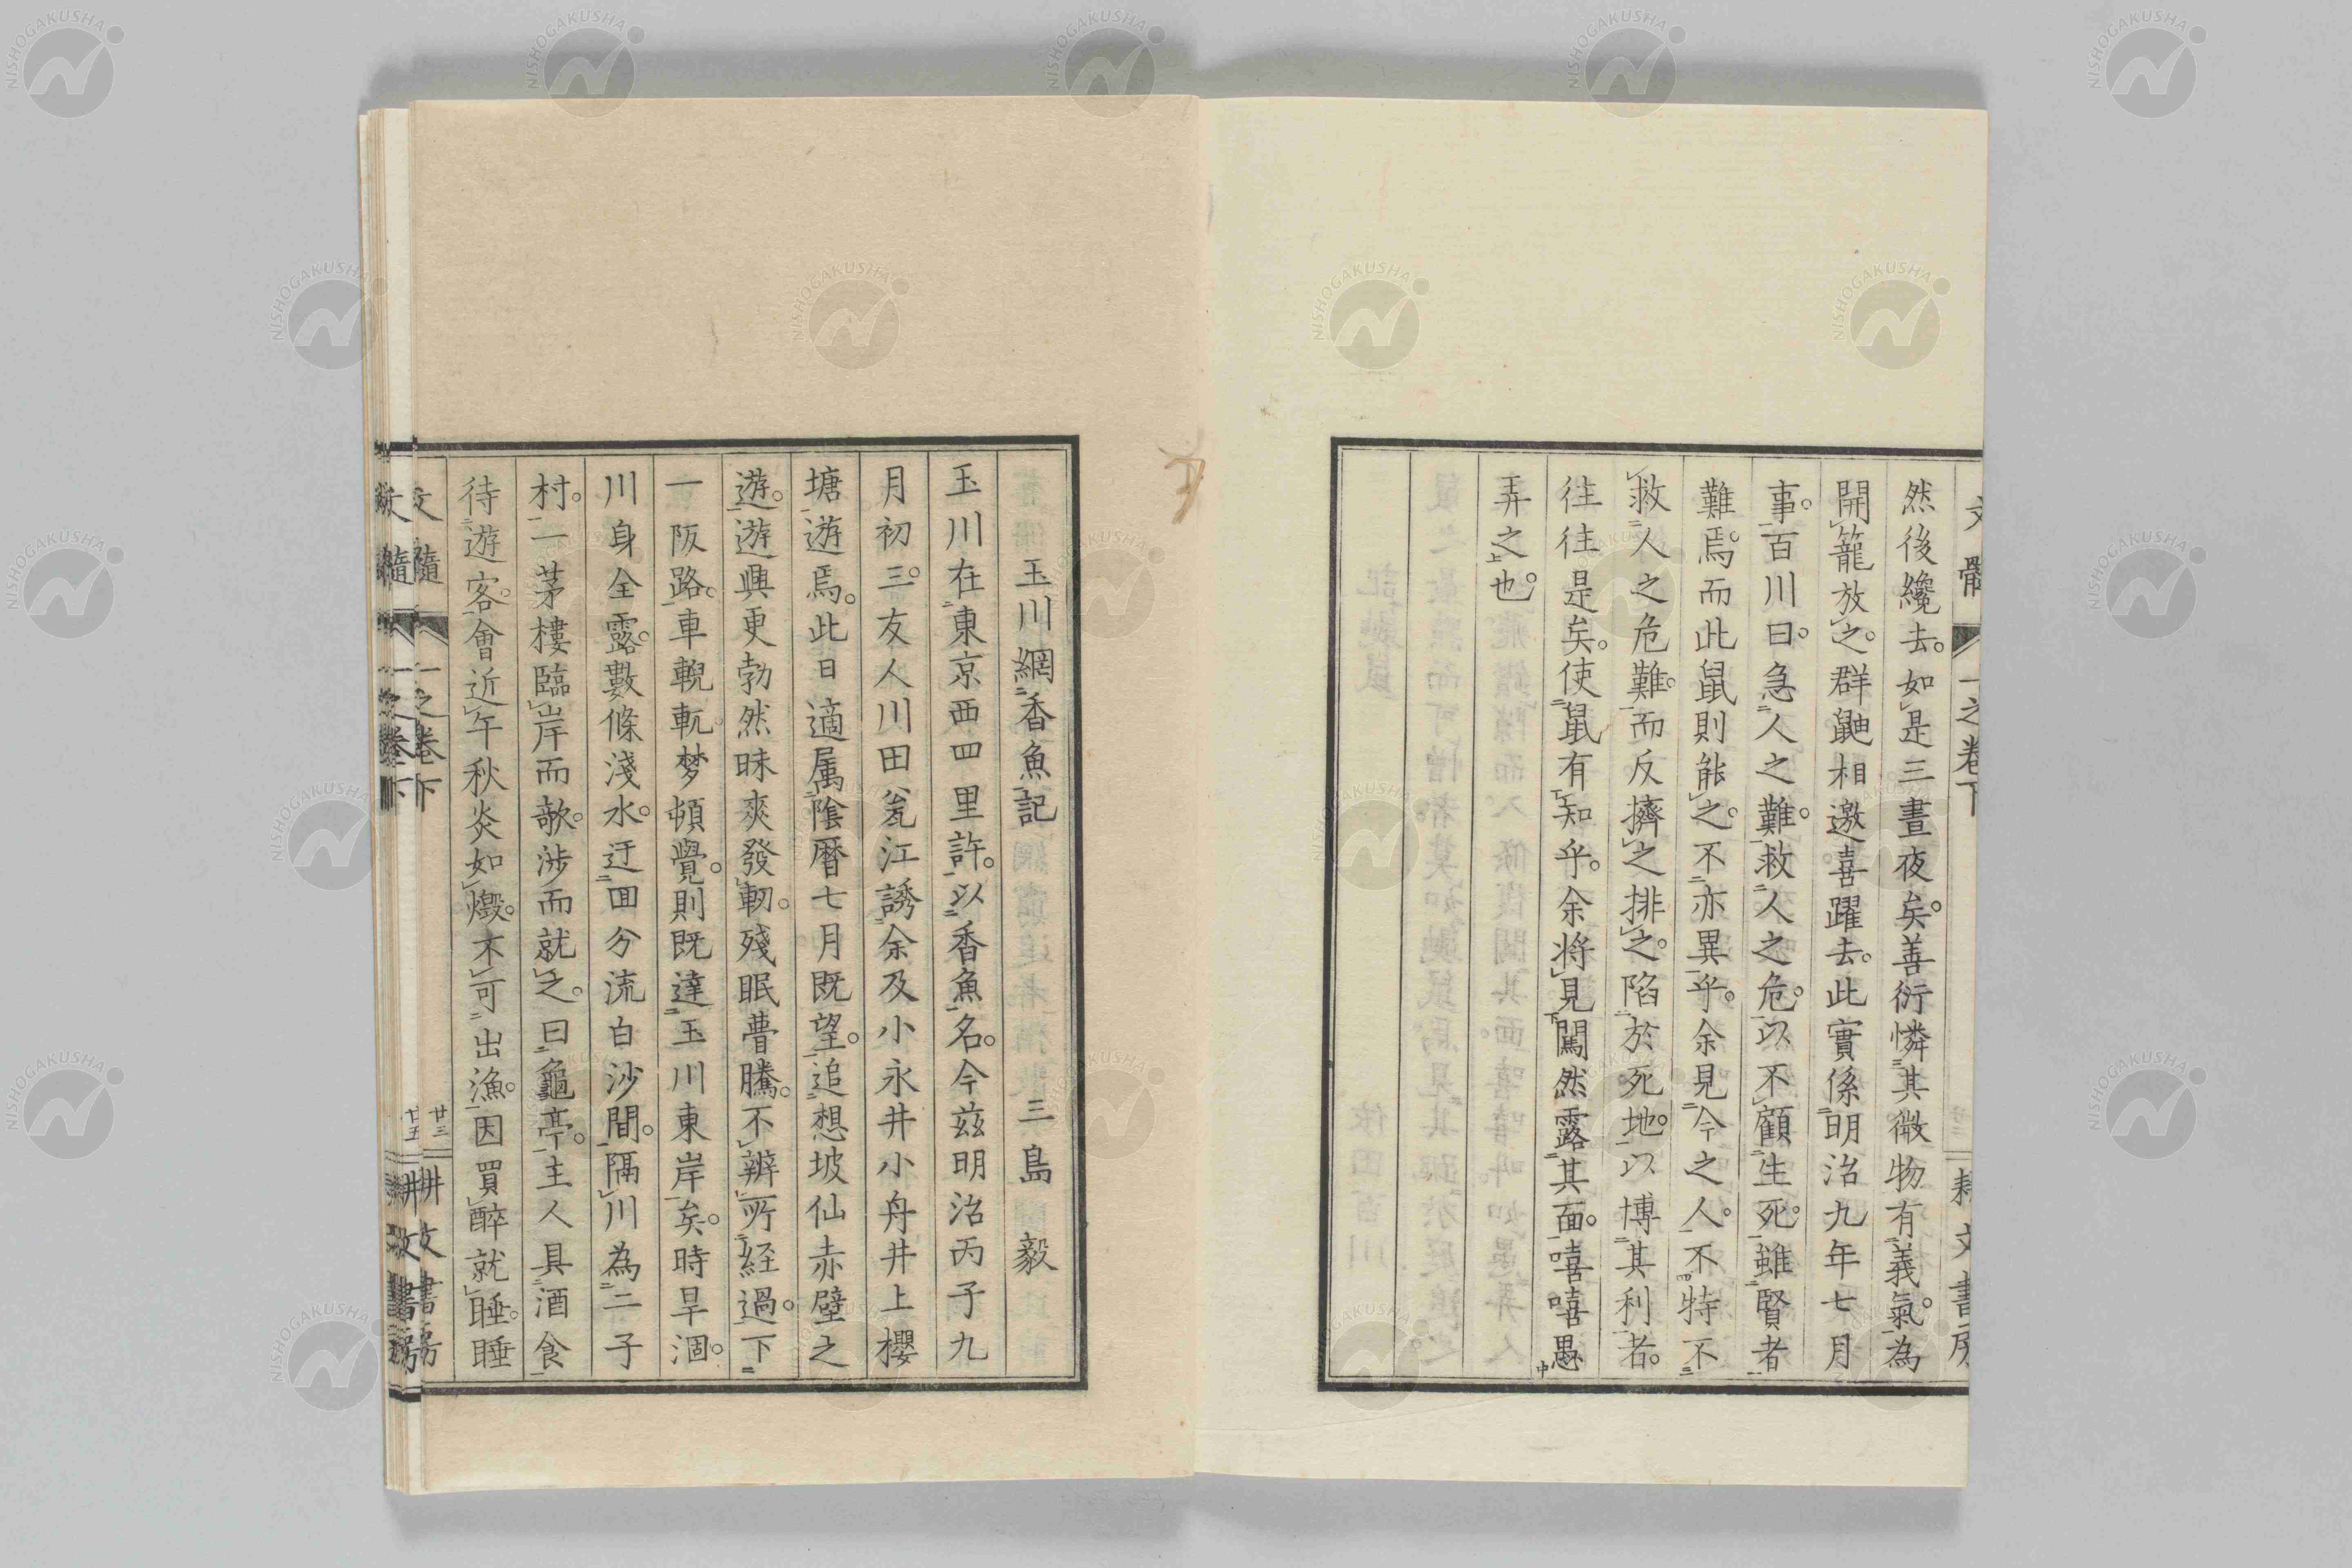 然後纔去。如是三晝夜矣。善衍憐其微物有義氣。為
開籠放之。群鼬相邀喜躍去。此實係明治九年七月
事。百川曰。急人之難。救人之危。以不顧生死。雖賢者
難焉。而此鼠則能之。不亦異乎。余見今之人。不特不
救人之危難。而反擠之排之。陷於死地。以博其利者。
往往是矣。使鼠有知乎。余將見闖然露其面。嘻嘻愚
弄之也。
玉川網香魚記 三島毅
玉川在東京西四里許。以香魚名。今茲明治丙子九
月初三。友人川田瓮江誘余及小永井小舟井上櫻
塘遊焉。此日適属陰暦七月既望。追想坡仙赤壁之
遊。遊興更勃然昧爽發軔。殘眠瞢騰。不辨所経過。下
一阪路。車輗軏梦頓覺。則既達玉川東岸矣。時旱涸。
川身全露。數條淺水。迂回分流白沙間。隔川為二子
村。一茅樓臨岸而欹。渉而就之。曰龜亭。主人具酒食
待遊客。會近午秋炎如燬。不可出漁。因買醉就睡。睡
文隨 一之卷下 廿三 耕文書房
廿五